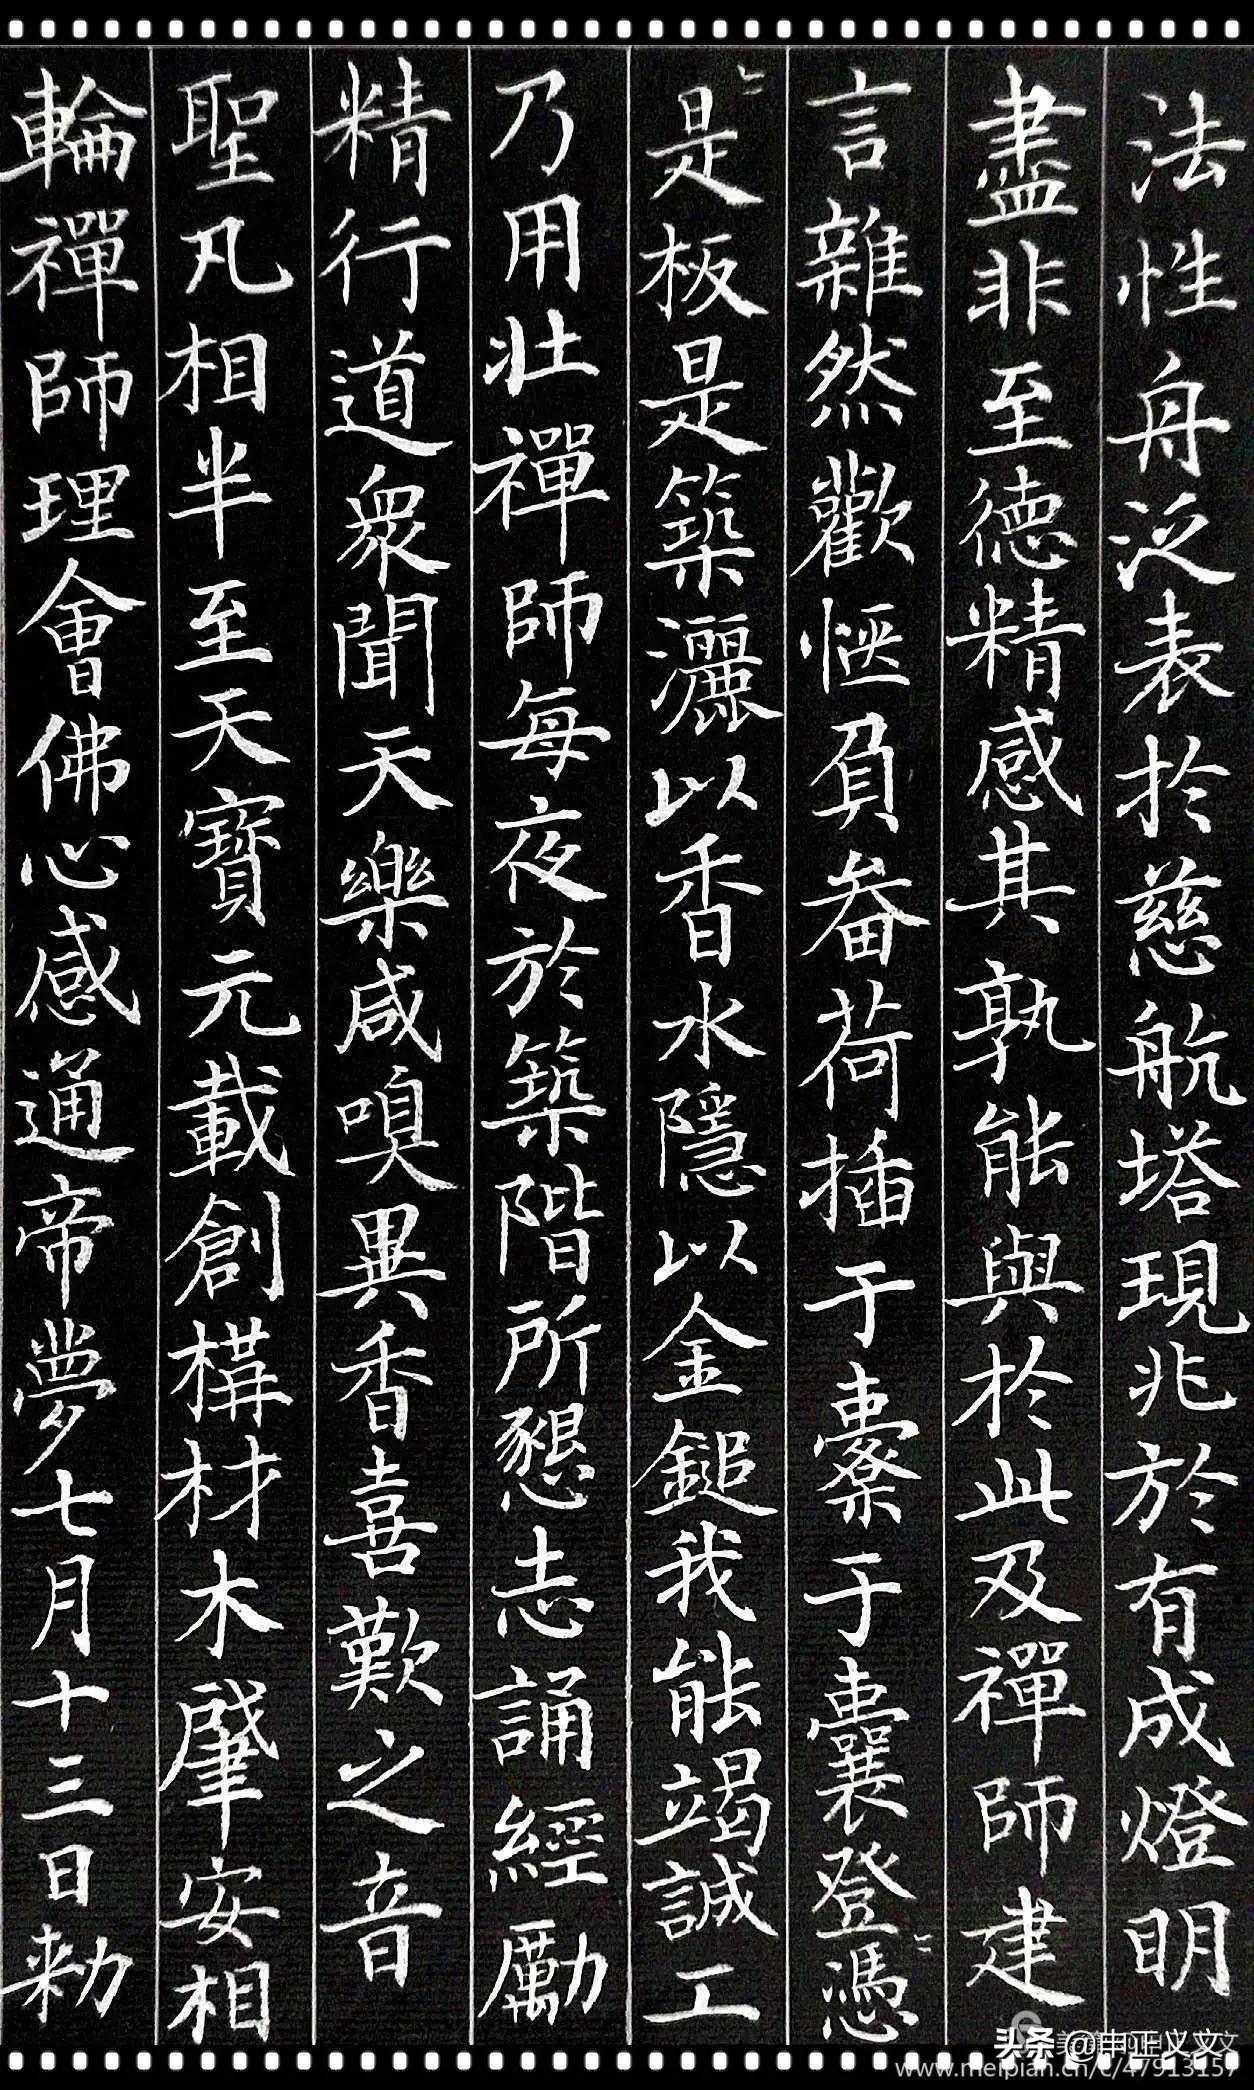 法性舟泛表於慈航塔現兆於有成燈明
盡非至德精感其孰能與於此及禪師建
言雜然歡愜負畚荷插于橐于囊登登憑憑
是板是築灑以香水隱以金鎚我能竭誠工
乃用壯禪師每夜於築階所懇志誦經勵
精行道衆聞天樂咸嗅異香喜歎之音
聖凡相半至天寶元載創構材木肇安相
輪禪師理會佛心感通帝夢七月十三日勅
头条 @中正义文
www.meipian.cn/c/47913157